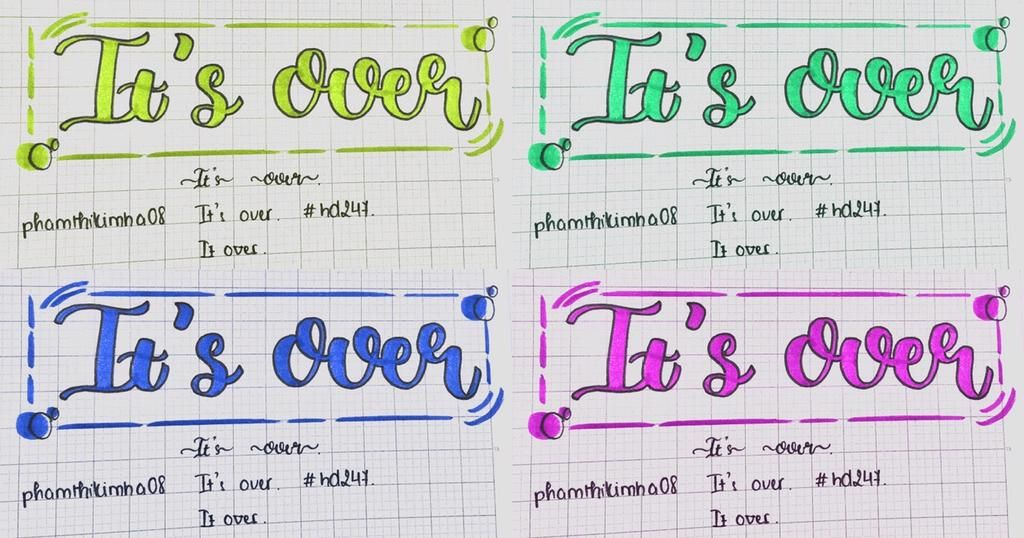 It's over
It's over
~It's~ ~over~.
~It's~ ~over~.
phamthikimha08 It's over. #hd247.
phamthikimha08 It's over. #hd247.
It over.
It over.
It's over
It's over
~It's~ ~over~.
~It's~ ~over~.
phamthikimha08 It's over. #hd247.
phamthikimha08 It's over. #hd247.
It over.
It over.